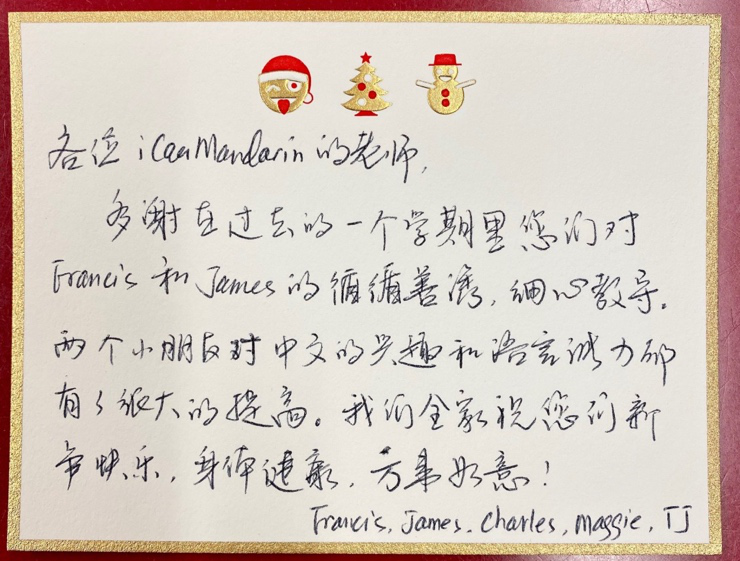 各位 iCanMandarin 的老师,
多谢在过去的一个学期里您们对
Francis 和 James 的循循善诱, 细心教导。
两个小朋友对中文的兴趣和语言能力都
有了很大的提高。我们全家祝您们新
年快乐, 身体健康, 万事如意!
Francis, James, Charles, Maggie, TJ